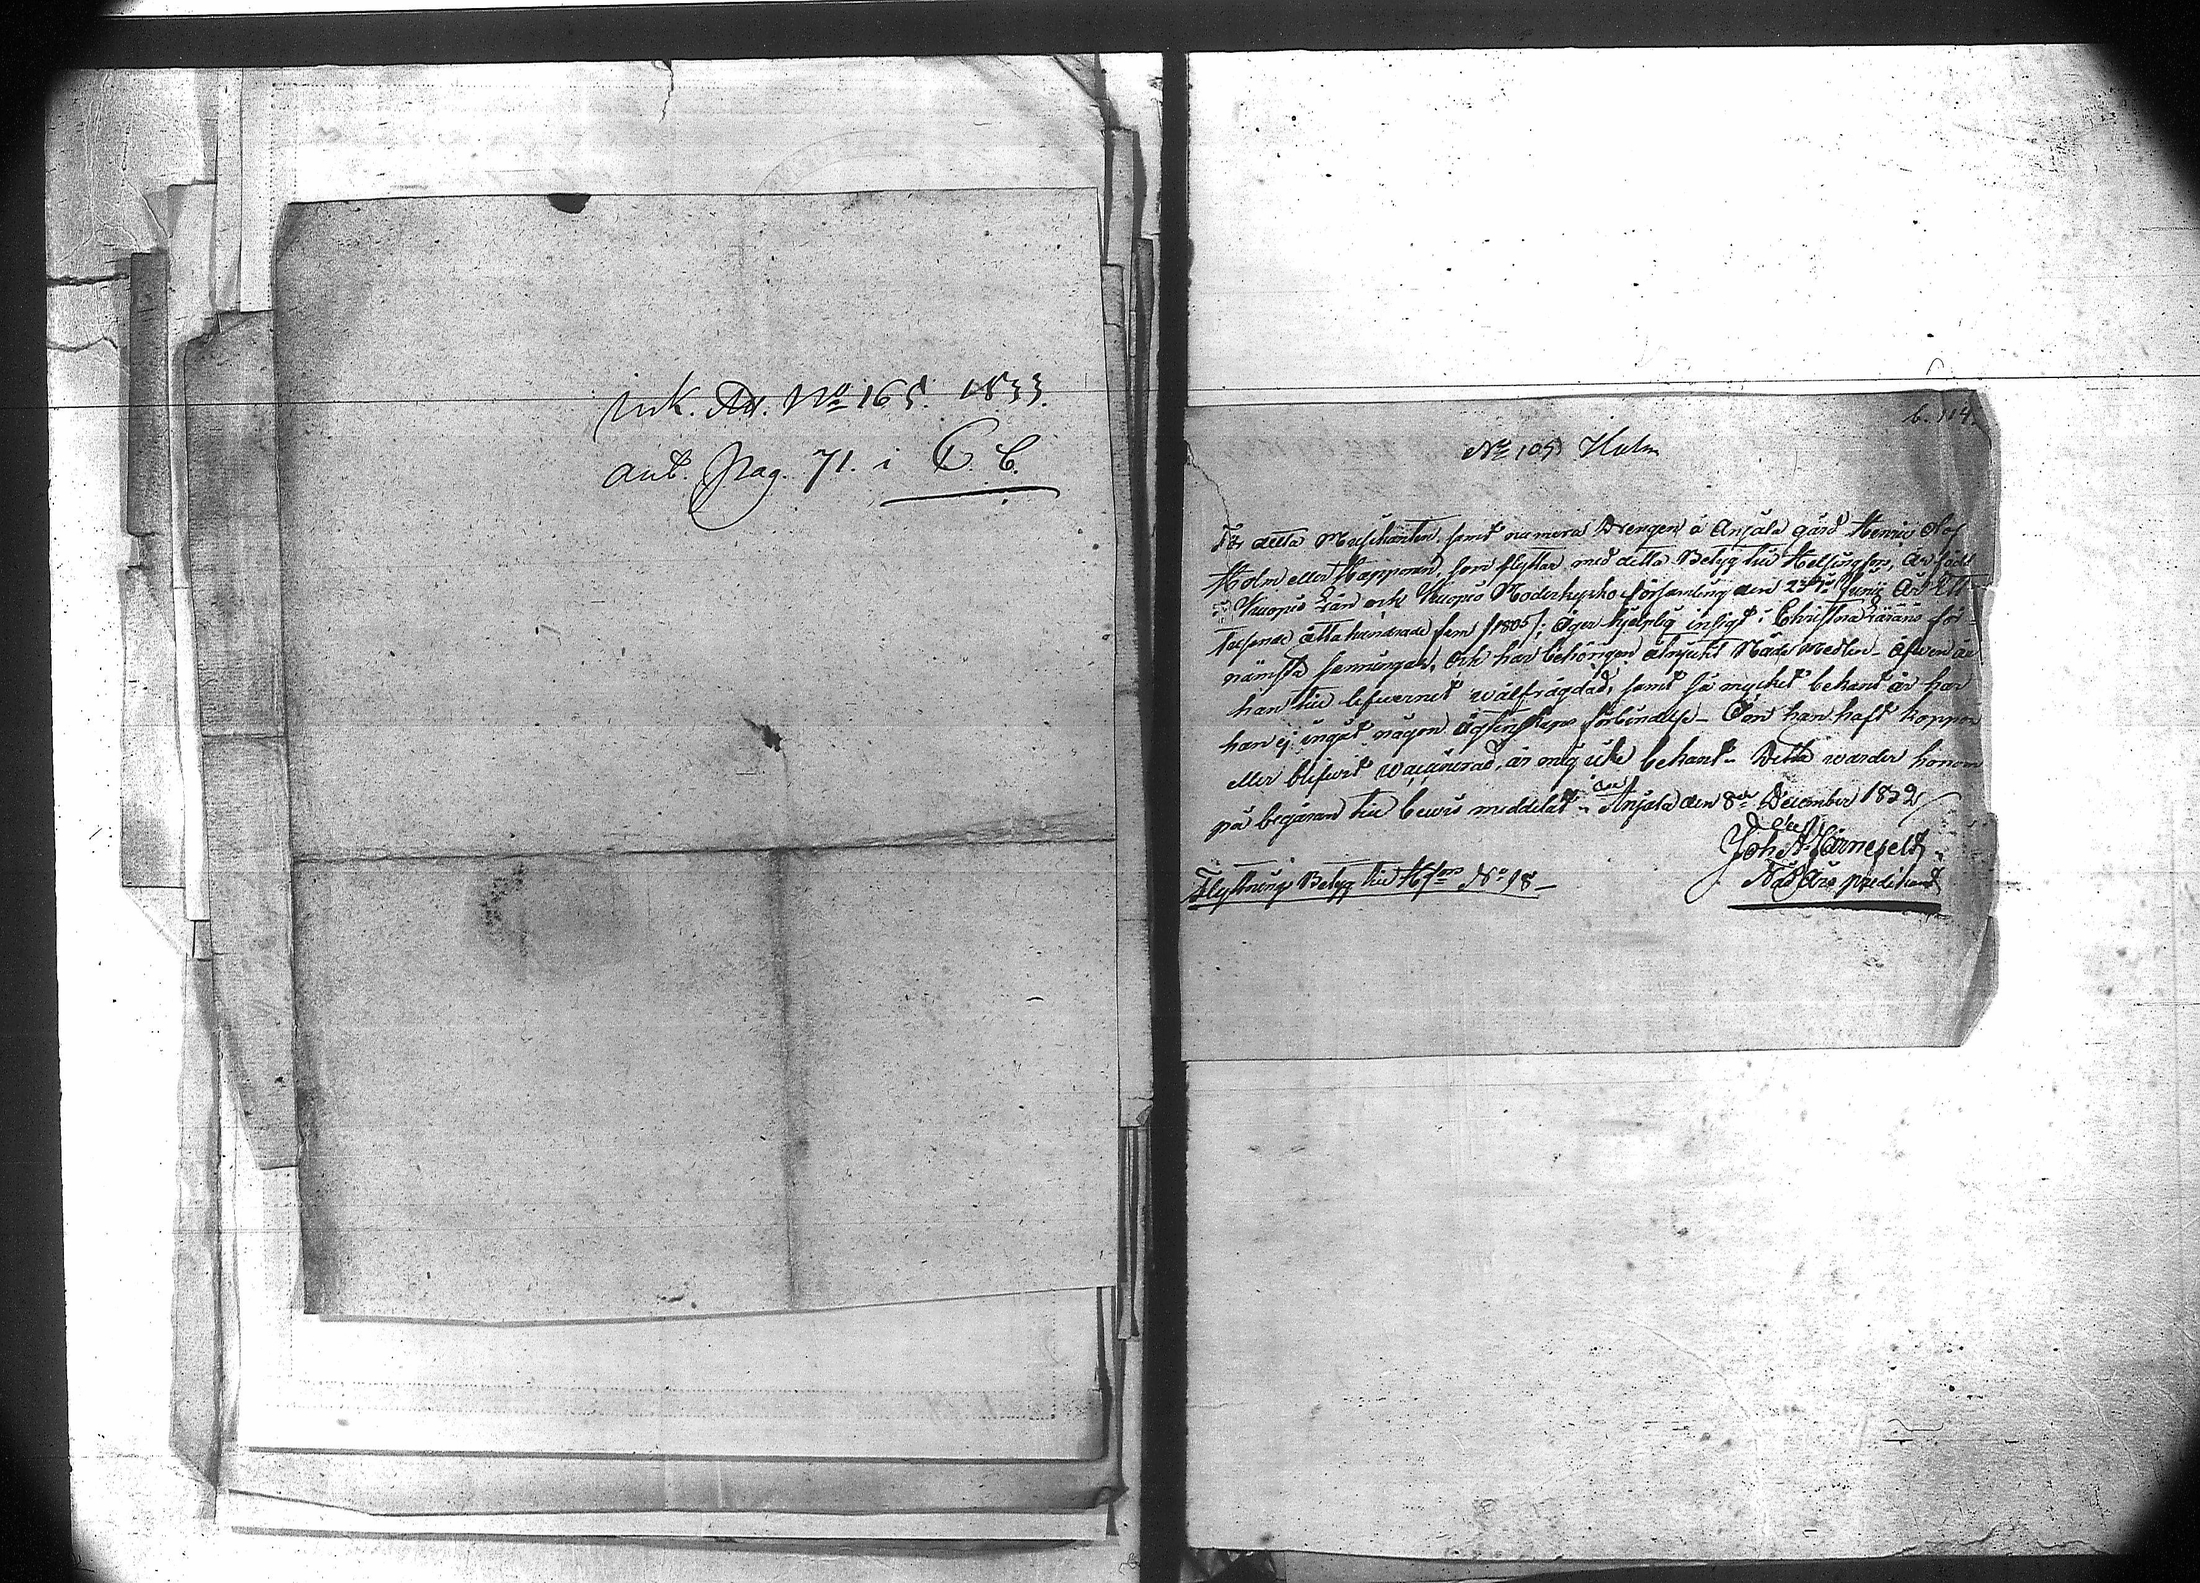 ink. d. No 165. 1833.
ant. pag. 71. i C. B.
b. 104.
No 105 Holm
För detta Musikanten, samt numera Drengen å Anjala gård Henric Olof
Holm eller Happonen, som flyttar med detta Betyg till Helsingfors, är född
i Kuopio Län och Kuopio Moderkyrko församling den 23dje Junii År Ett
tusende åtta hundrade fem /1805/; äger hjelplig insigt i Christna Lärans för-
nämsta sanningar, och har behörigen åtnjutit Nåde Medlen - äfwen är
han till lefwernet wälfrägdad, samt så mycket bekant är har
han ej ingåt någon Ägtenskaps förbindelse - Om han haft koppor
eller blifwit waccinerad, är mig icke bekant - Detta warder honom
på begäran till bewis meddelat - Anjala den 8de December 1832
Joh. A. Järnefelt
Nåd. års predikant
Flyttnings Betyg till H:fors No 18 -